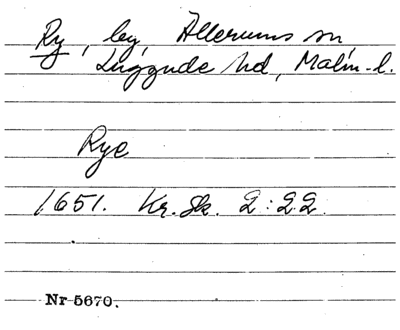 Ry, by, Allerums sn,
Luggude hd, Malm. l.
Rye
1651. Kr. Sk. 2:22.
Nr 5670.